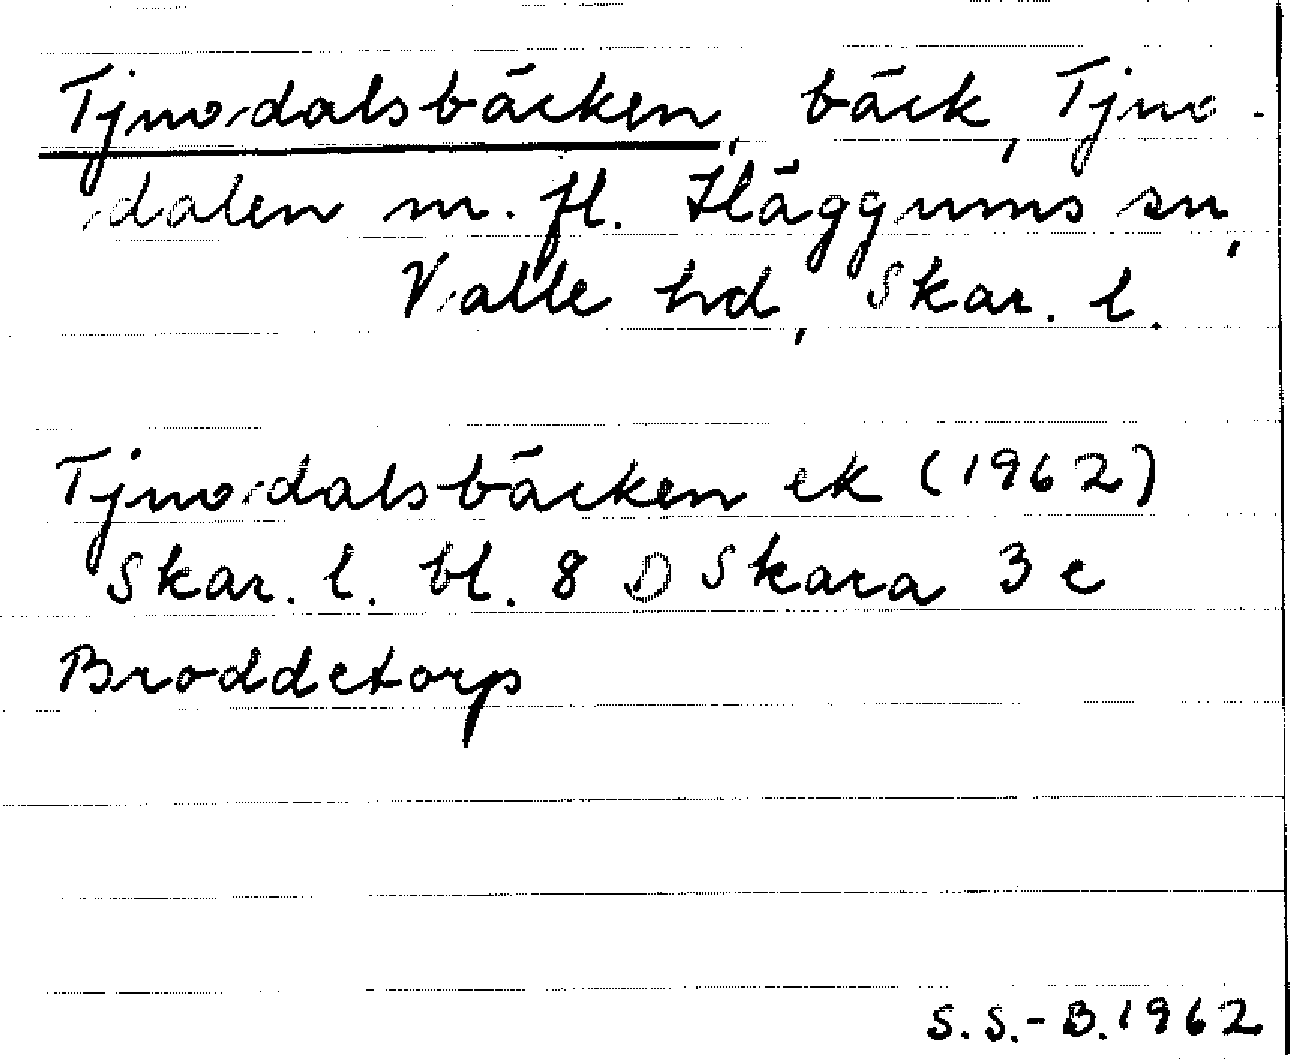 Tjuvdalsbäcken, bäck, Tjuv-
dalen m. fl. Häggums sn,
Valle hd, Skar. l.
Tjuvdalsbäcken ek (1962)
Skar. l. bl. 8 D Skara 3 e
Broddetorp
S.S.-B. 1962